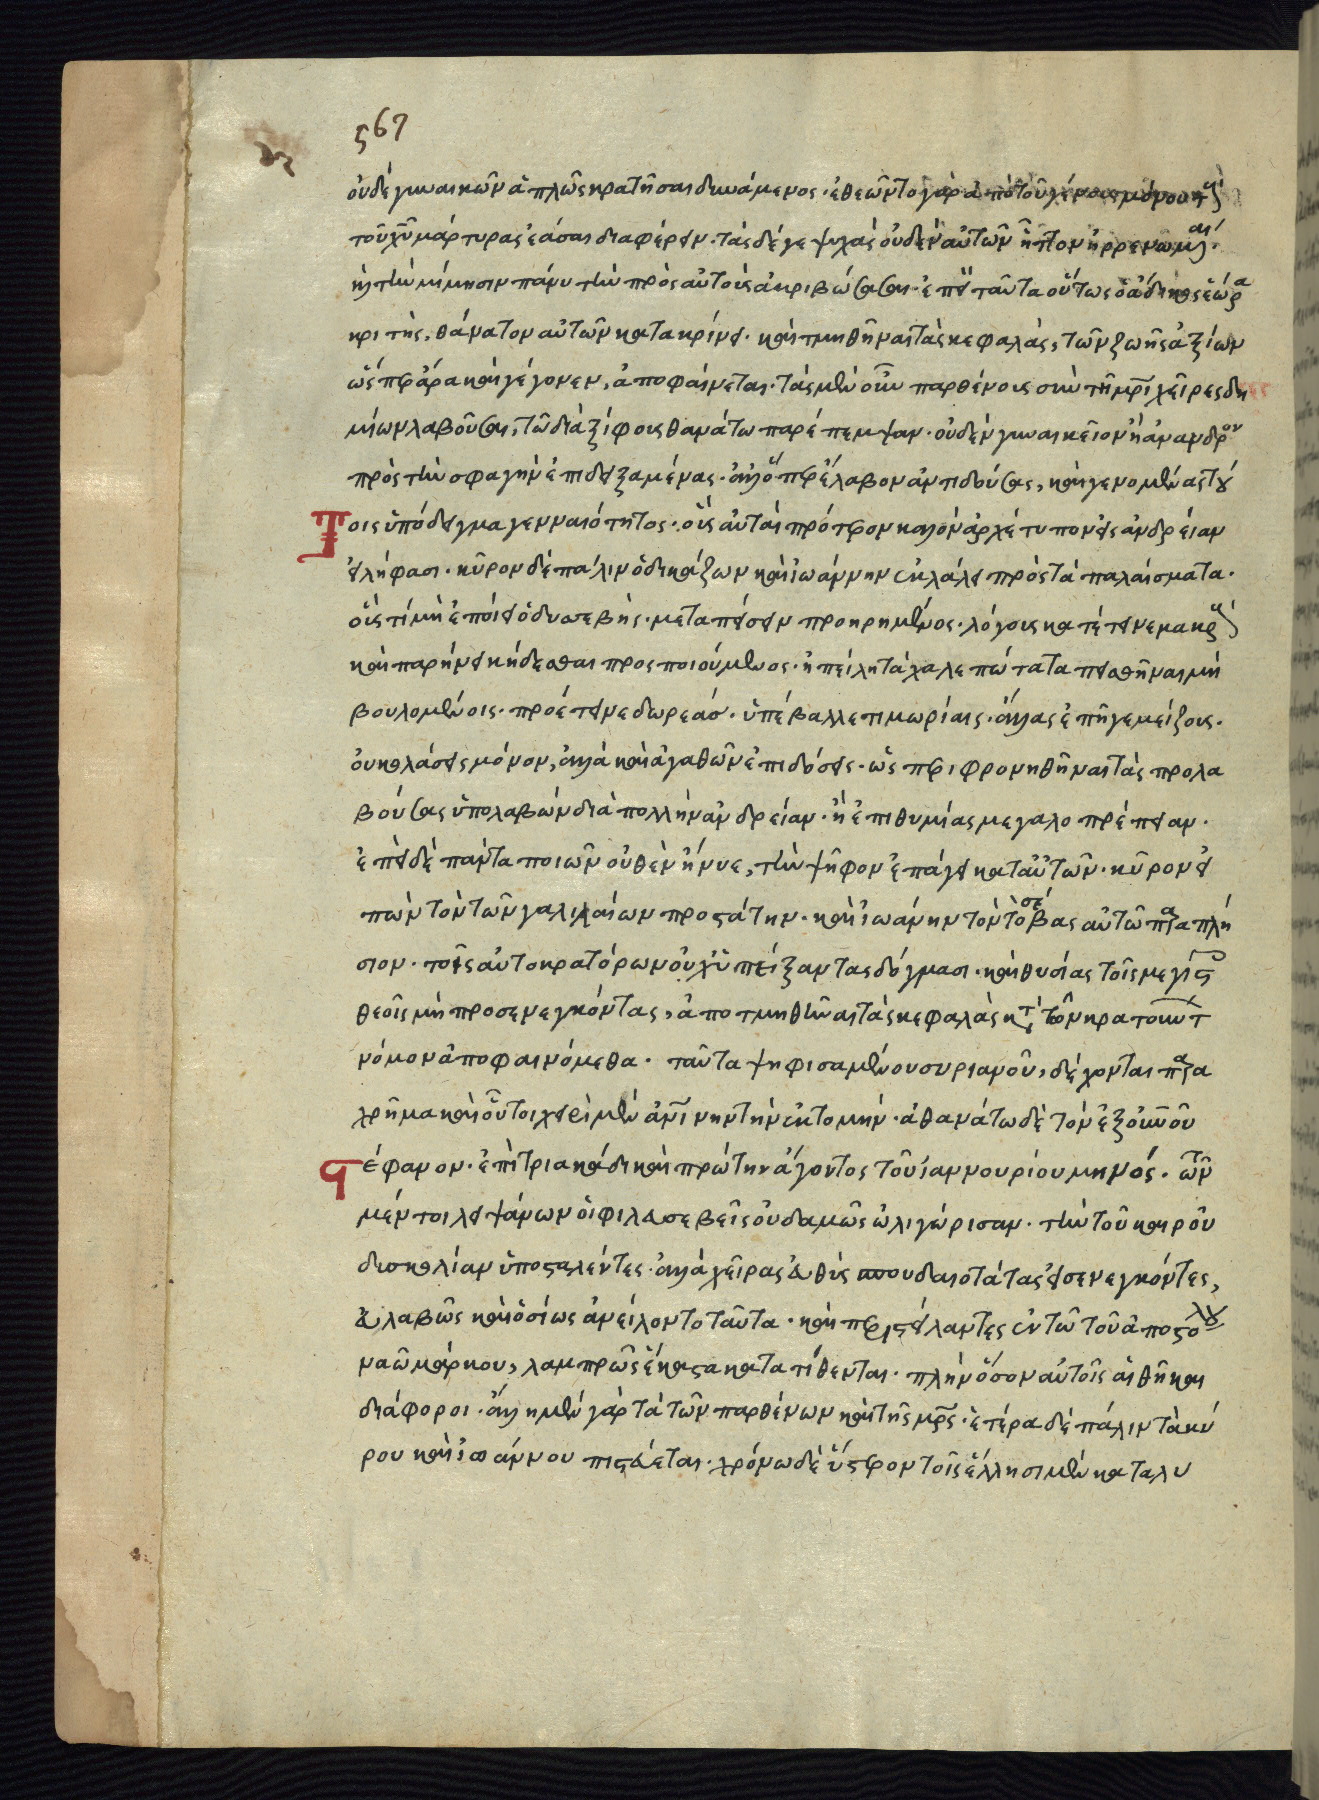 567
οὐδὲ γυναικῶν ἁπλῶς κρατῆσαι δυνάμενος · ἐθεῶντο γὰρ ἀπὸ τοῦ γένους μόνου
τοῦ χῦ μάρτυρας ἐάσαι διαφέρειν · τὰς δέ γε ψυχὰς οὐδὲν αὐτῶν ἧττον ἠρρενωμ
κ τὴν μίμησιν πάνυ τὴν πρὸς αὐτοὺς ἀκριβώσασαι · ἐπεὶ ταῦτα οὕτως ὁ ἄδικος ἑώρα
κριτής, θάνατον αὐτῶν κατακρίνει · καὶ τμηθῆναι τὰς κεφαλὰς, τῶν ζωῆς ἀξίων
ὥσπερ ἄρα καὶ γέγονεν, ἀποφαίνεται · τὰς μὲν οὖν παρθένους σὺν τῆ μρὶ χεῖρες δη
μίων λαβοῦσαι, τῶ διὰ ξίφους θανάτω παρέπεμψαν · οὐδὲν γυναικεῖον ἢ ἄνανδρον
πρὸς τὴν σφαγὴν ἐπιδειξαμένας · ἀλλ' ὅπερ ἔλαβον ἀντιδούσας, καὶ γενομένας τού
Τοις ὑπόδειγμα γενναιότητος · οὓς αὐταὶ πρότερον καλὸν ἀρχέτυπον εἰς ἀνδρείαν
εἰλήφασι · κῦρον δὲ πάλιν ὁ δικάζων καὶ ἰωάννην ἐκκαλεῖ πρὸς τὰ παλαίσματα ·
οἷς τί μὴ ἐποίει ὁ δυσσεβὴς · μεταπείσειν προηρημένος · λόγους κατέτεινε μακρ
καὶ παρήνει κήδεσθαι προσποιούμενος · ἠπείλει τὰ χαλεπώτατα πεισθῆναι μὴ
βουλομένοις · προέτεινε δωρεάς · ὑπέβαλλε τιμωρίαις · ἄλλας ἐπῆγε μείζους ·
οὐ κολάσεις μόνον, ἀλλὰ καὶ ἀγαθῶν ἐπιδόσεις · ὡς περιφρονηθῆναι τὰς προλα
βούσας ὑπολαβὼν διὰ πολλὴν ἀνδρείαν · ἢ ἐπιθυμίας μεγαλοπρέπειαν ·
ἐπεὶ δὲ πάντα ποιῶν οὐθὲν ἤνυε, τὴν ψῆφον ἐπάγει κατ' αὐτῶν · κῦρον εἰ
πὼν τὸν τῶν γαλιλαίων προστάτην · καὶ ἰωάννην τὸν τὸ σέβας αὐτῶ παραπλή
σιον · τοῖς αὐτοκρατόρων οὐχ ὑπείξαντας δόγμασι · καὶ θυσίας τοῖς μεγίστ
θεοῖς μὴ προσενεγκόντας, ἀποτμηθῆναι τὰς κεφαλὰς κτ τὸν κρατοῦντ
νόμον ἀποφαινόμεθα · ταῦτα ψηφισαμένου συριανοῦ, δέχονται παρα
χρῆμα καὶ οὗτοι χειρὶ μὲν ἀνίνην τὴν ἐκτομήν · ἀθανάτω δὲ τὸν ἐξ οὐνοῦ
στέφανον · ἐπὶ τριακάδι καὶ πρώτην ἄγοντος τοῦ ἰαννουρίου μηνός · ὧν
μέν τοι λειψάνων οἱ φιλευσεβεῖς οὐδαμῶς ὠλιγώρισαν · τὴν τοῦ καιροῦ
δυσκολίαν ὑποσταλέντες · ἀλλὰ χεῖρας εὐθὺς σπουδαιοτάτας εἰσενεγκόντες,
εὐλαβῶς καὶ ὁσίως ἀνείλοντο ταῦτα · καὶ περιστείλαντες ἐν τῶ τοῦ ἀποστόλου
ναῶ μάρκου, λαμπρῶς ἕκαστα κατατίθενται · πλὴν ὅσον αὐτοῖς αἱ θῆκαι
διάφοροι · ἄλλη μὲν γὰρ τὰ τῶν παρθένων καὶ τῆς μρς · ἑτέρα δὲ πάλιν τὰ κύ
ρου καὶ ἰωάννου πιστεύεται · χρόνω δὲ ὕστερον τοῖς ἕλλησι μὲν καταλυ